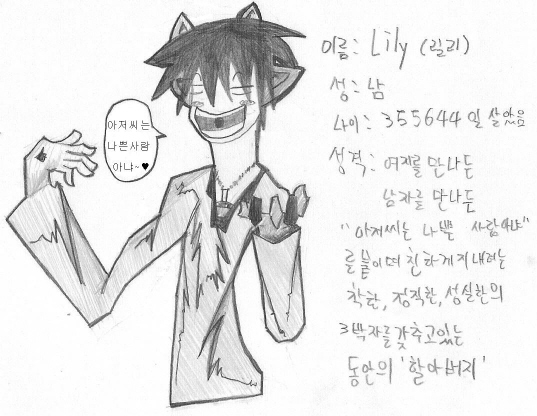 아저씨는
나쁜사람
아냐~♥
이름: Lily (릴리)
성: 남
나이: 355644일 살았음
성격: 여자를 만나든
남자를 만나든
"아저씨는 나쁜 사람아냐"
를 붙이며 친하게 지내려는
착한, 정직한, 성실한의
3박자를 갖추고 있는
동안의 '할아버지'